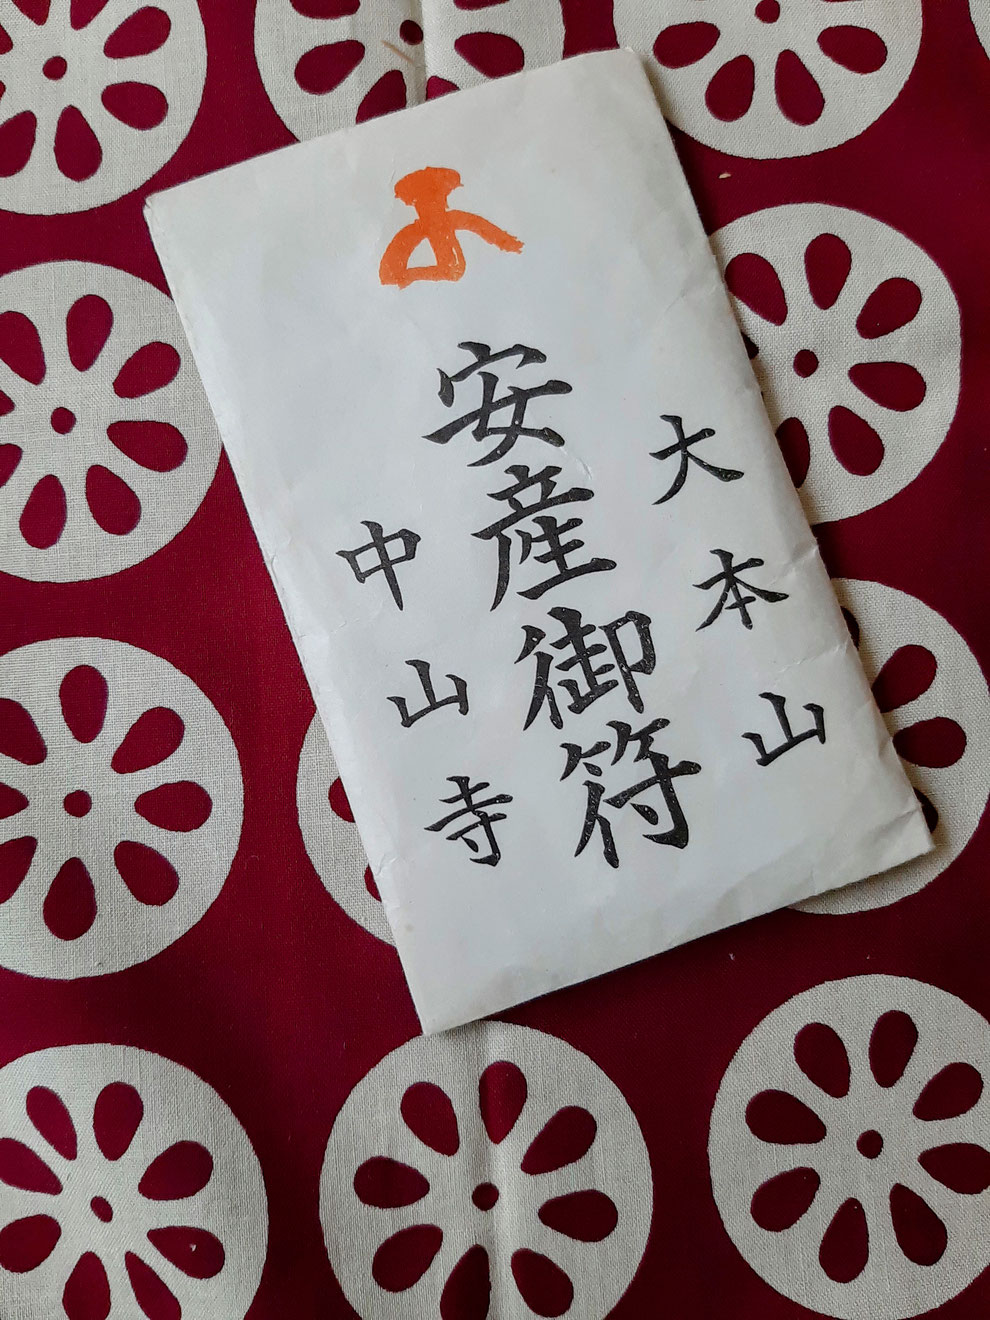 大本山
安産御符
中山寺